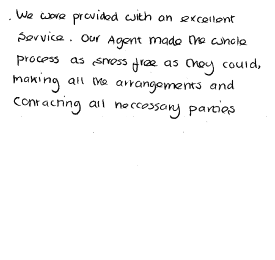 . We were provided with an excellent
service. Our Agent made the whole
process as stress free as they could,
making all the arrangements and
contacting all neccessary parties